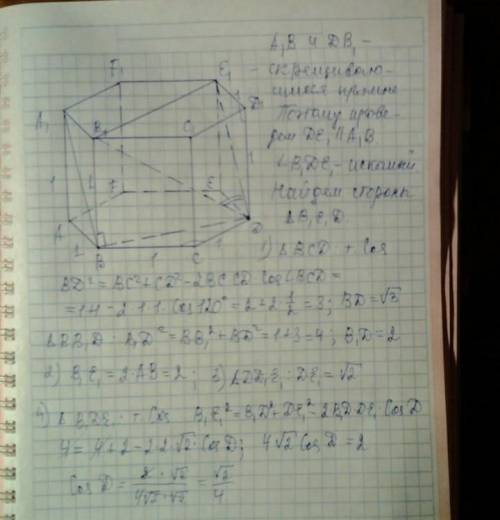 A₁B и DB₁ –
– скрещиваю-
щиеся прямые
Поэтому прове-
дем DE₁ ∥ A₁B
∠B₁DE₁ – искомый
Найдем стороны
ΔB₁E₁D
F₁ E₁
A₁ D₁
B₁ C₁
1 1 1
F E
A D
B 1 C 1
1) ΔBCD т. Cos
BD² = BC² + CD² – 2BC·CD·Cos∠BCD =
= 1+1 – 2·1·1·Cos120° = 2+2·1/2 = 3; BD = √3
ΔBB₁D: B₁D² = BB₁² + BD² = 1+3 = 4; B₁D = 2
2) B₁E₁ = 2AB = 2; 3) ΔDD₁E₁: DE₁ = √2
4) ΔB₁DE₁: т. Cos B₁E₁² = B₁D² + DE₁² – 2B₁D·DE₁·CosD
4 = 4+2 – 2·2·√2·CosD; 4√2 CosD = 2
CosD = 2·√2/4√2·√2 = √2/4